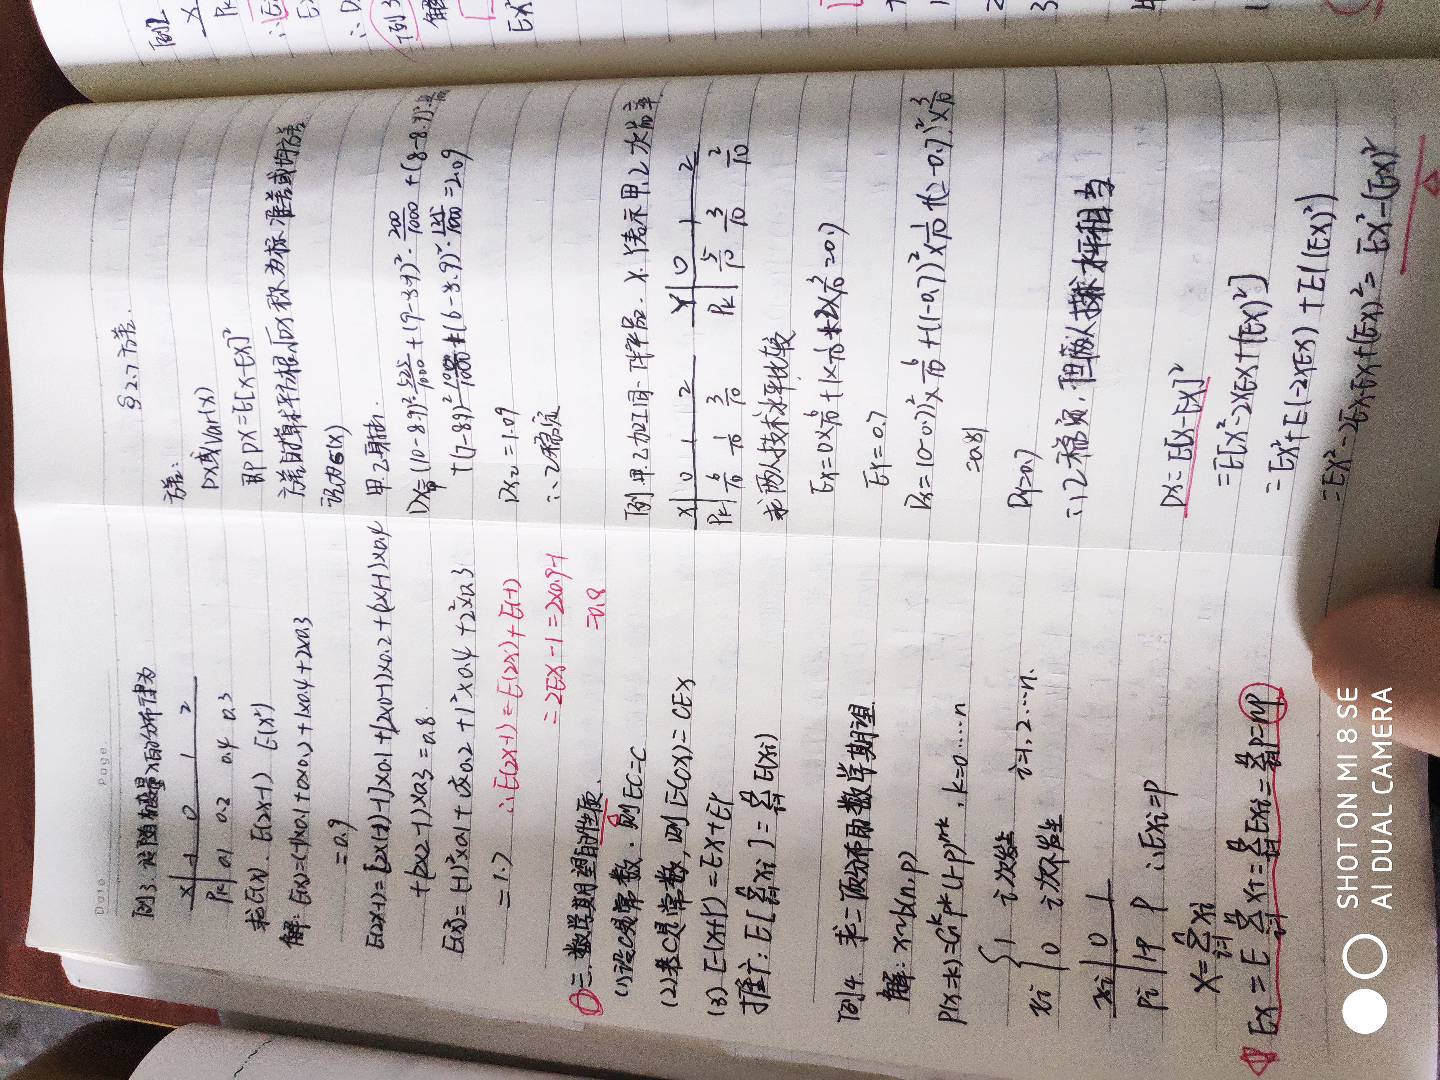 Date Page
例3. 设随机变量X的分布律为
X -1 0 1 2
Pk 0.1 0.2 0.4 0.3
求E(X). E(2X-1) E(X²)
解: E(X)=(-1)×0.1+0×0.2+1×0.4+2×0.3
=0.9
E(2X-1)=[2×(-1)-1]×0.1+(2×0-1)×0.2+(2×1-1)×0.4
+(2×2-1)×0.3=0.8
E(X²)=(-1)²×0.1+0²×0.2+1²×0.4+2²×0.3
=1.7 ∴E(2X-1)=E(2X)+E(-1)
=2EX-1=2×0.9-1
=0.8
三.数学期望的性质.
(1)设C是常数.则EC=C
(2)若C是常数,则E(CX)=CEX
(3) E(X+Y)=EX+EY
推广: E[∑ⁿᵢ₌₁Xi]=∑ⁿᵢ₌₁E(Xi)
例4. 求二项分布的数学期望
解: X~b(n,p)
P(X=k)=Cₙᵏpᵏ(1-p)ⁿ⁻ᵏ, k=0·····n
1 i次发生
Xi { i=1,2…n.
0 i次不发生
Xi 0 1
Pi 1-p p ∴EXi=p
X=∑ⁿᵢ₌₁Xi
EX=E∑ⁿᵢ₌₁Xi=∑ⁿᵢ₌₁EXi=∑ⁿᵢ₌₁p=np
§2.7方差.
方差:
DX或Var(X)
即DX=E[X-EX]²
方差的算术平方根√DX称为标准差或均方差
记为σ(X)
甲.乙射击.
DX甲=(10-8.9)²·525/1000+(9-8.9)²·200/1000+(8-8.9)²·
+(7-8.9)²+(6-8.9)²·125/1000=2.09
DX乙=1.09
∴乙稳定
例.甲.乙加工同一件产品. X.Y表示甲.乙次品率.
X 0 1 2 Y 0 1 2
Pk 6/10 1/10 3/10 Pk 5/10 3/10 2/10
求两人技术水平比较
EX=0×6/10+1×1/10+2×3/10=0.7
EY=0.7
DX=(0-0.7)²×6/10+(1-0.7)²×1/10+(2-0.7)²×3/10
=0.81
DY=0.7
∴乙稳定,但两人技术水平相当
DX=E[X-EX]²
=E[X²-2XEX+(EX)²]
=EX²+E(-2XEX)+E((EX)²)
=EX²-2EX·EX+(EX)²=EX²-(EX)²
例2
X
Pk
例3
解
EX²
SHOT ON MI 8 SE
AI DUAL CAMERA